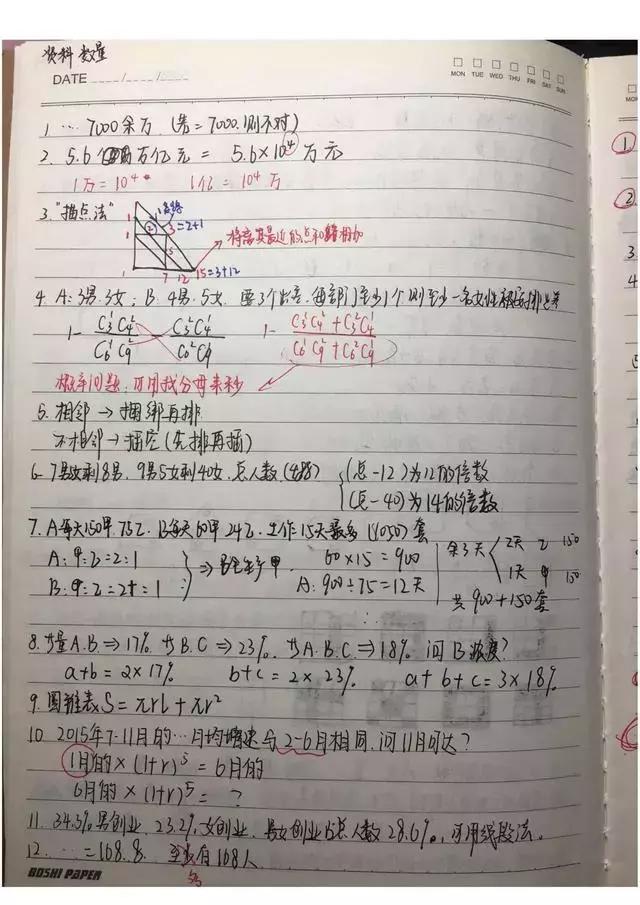 资料 数量
DATE
MON TUE WED THU FRI SAT SUN
1 … 7000余万 (若=7000.则不对)
2. 5.6万亿元 = 5.6×10⁴万元
1万=10⁴ 1亿=10⁴万
3. "描点法" 2 3=2+1
1
1
5
7 12 15=3+12
将离其最近的点和相加
4. A:3男.3女; B:4男.5女. 3个出差.每部门至少1个则至少一名女性被安排出差
1- C₃¹C₄²/C₆¹C₉² C₃²C₄¹/C₆²C₉¹ 1- C₃¹C₄²+C₃²C₄¹/C₆¹C₉²+C₆²C₉¹
概率问题.可用找分母来秒
5. 相邻→捆绑再排
不相邻→插空(先排再插)
6. 7男5女剩8男. 9男5女剩40女. 总人数 (总-12)为12的倍数
(总-40)为14的倍数
7. A每天150甲.75乙. B每天60甲24乙. 工作15天最多(1050)套
A:甲:乙=2:1 ⇒ 甲. 60×15=900 余3天 2天 乙 150
B:甲:乙=2+:1 A:900÷75=12天 1天 甲 150
共900+150套
8. 等量A.B⇒17%. 等B.C⇒23%. 等A.B.C⇒18% 问B浓度?
a+b=2×17% b+c=2×23% a+b+c=3×18%
9. 圆锥表S=πrl+πr²
10. 2015年7-11月的…月均增速与2-6月相同.问11月可达?
1月的×(1+r)⁵=6月的
6月的×(1+r)⁵= ?
11. 34.3%男创业. 23.2%女创业. 男女创业占总人数28.6%. 可用线段法.
12. …=168.8. 至多有168人
GOSHI PAPER
1
2
3
4